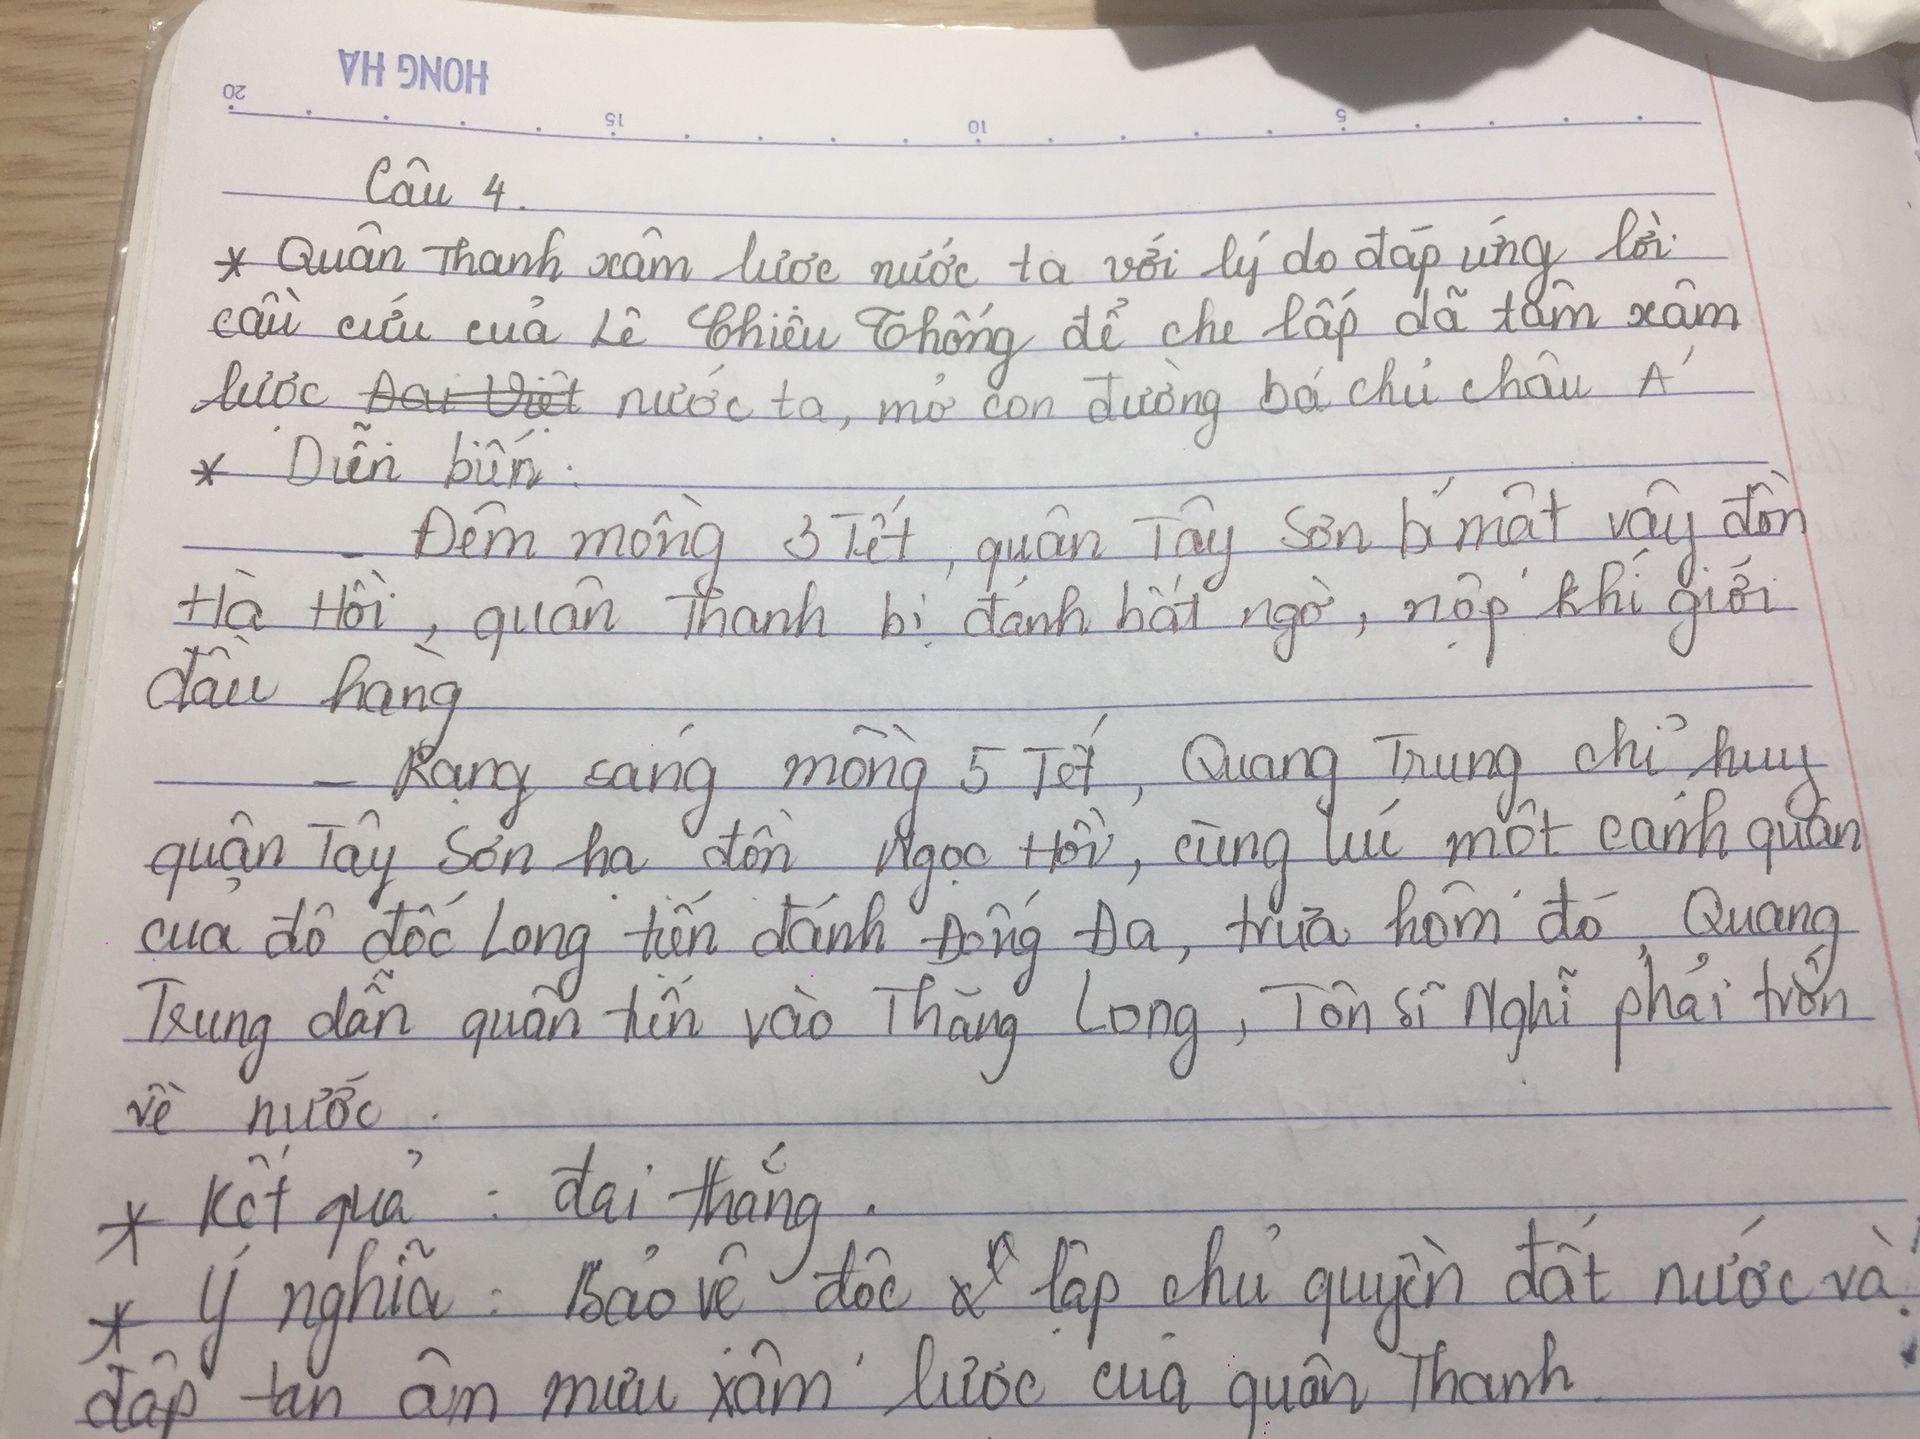 HONG HA
20 15 10 5
Câu 4.
* Quân Thanh xâm lược nước ta với lý do đáp ứng lời
cầu cứu của Lê Chiêu Thống để che lấp dã tâm xâm
lược Đại Việt nước ta, mở con đường bá chủ châu Á
* Diễn biến:
- Đêm mồng 3 Tết, quân Tây Sơn bí mật vây đồn
Hà Hồi, quân Thanh bị đánh bất ngờ, nộp khí giới
đầu hàng
- Rạng sáng mồng 5 Tết, Quang Trung chỉ huy
quân Tây Sơn hạ đồn Ngọc Hồi, cùng lúc một cánh quân
của đô đốc Long tiến đánh Đống Đa, trưa hôm đó, Quang
Trung dẫn quân tiến vào Thăng Long, Tôn Sĩ Nghĩ phải trốn
về nước.
* Kết quả: đại thắng.
* Ý nghĩa: Bảo vệ độc lập chủ quyền đất nước và
đập tan âm mưu xâm lược của quân Thanh